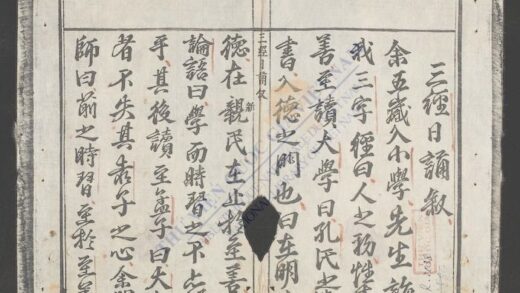 三經日誦敘
余五歲入小學先生
我三字經曰人之初性
善至讀大學曰孔氏之
書入德之門也曰在明
三經日誦敘
德在親民在止於至善
新
論語曰學而時習之不亦
乎其後讀至孟子曰大
者不失其赤子之心余
師曰前之時習至於至善